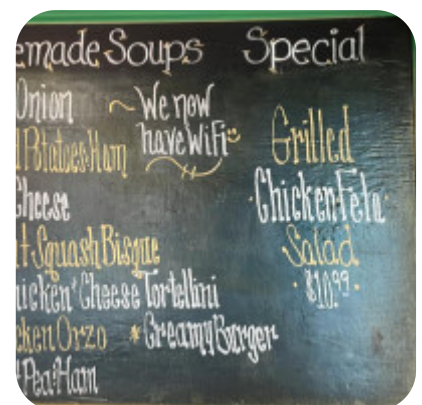 emade Soups
Onion
Potatoes Ham
Cheese
t Squash Bisque
icken & Cheese Tortellini
cken Orzo
*Creamy Burger
Pea & Ham
~We now
have WiFi
Special
Grilled
Chicken Feta
Salad
$10.99